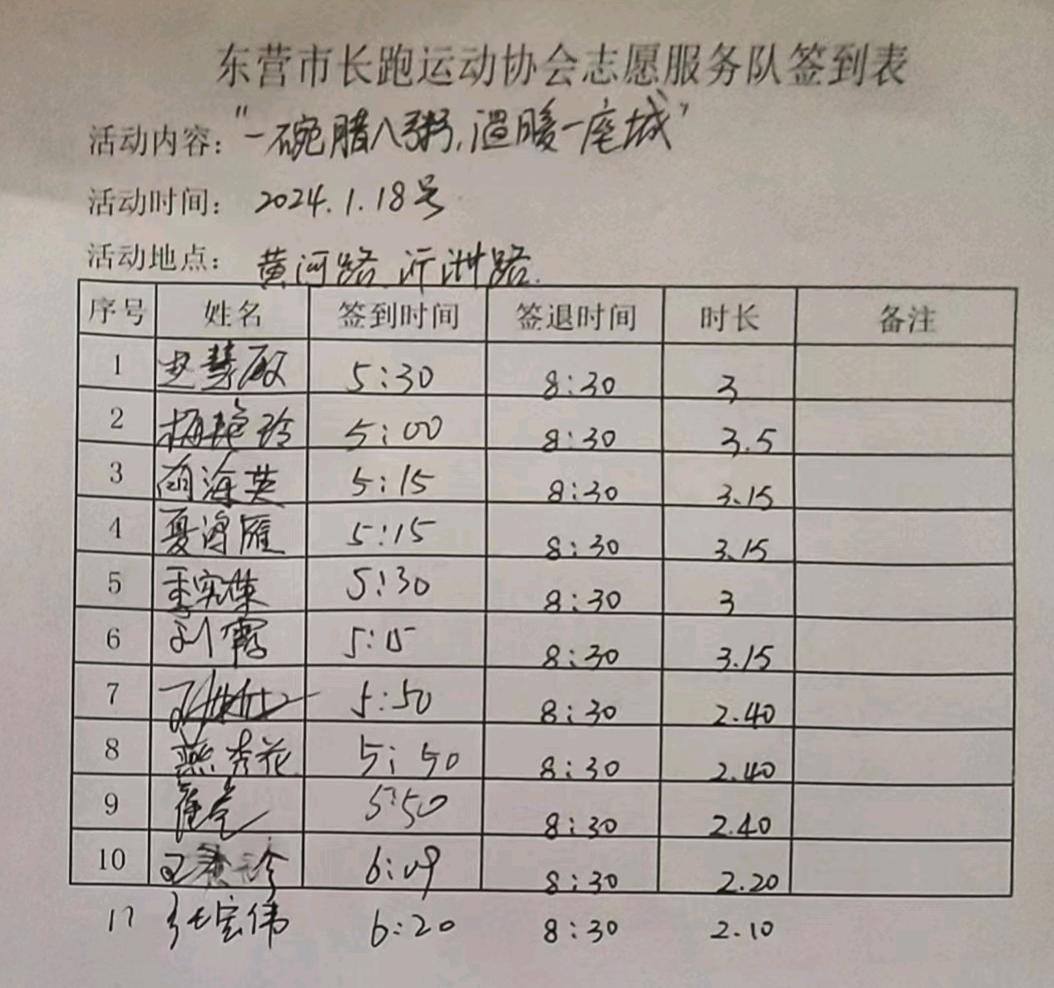 东营市长跑运动协会志愿服务队签到表
活动内容："一碗腊八粥,温暖一座城"
活动时间： 2024.1.18号
活动地点： 黄河路 沂州路.
序号 姓名 签到时间 签退时间 时长 备注
1 尹慧敏 5:30 8:30 3
2 梅艳玲 5:00 8:30 3.5
3 海英 5:15 8:30 3.15
4 夏海雁 5:15 8:30 3.15
5 李实栋 5:30 8:30 3
6 刘霞 5:15 8:30 3.15
7 5:50 8:30 2.40
8 燕秀花 5:50 8:30 2.40
9 5:50 8:30 2.40
10 王 珍 6:09 8:30 2.20
11 张宏伟 6:20 8:30 2.10